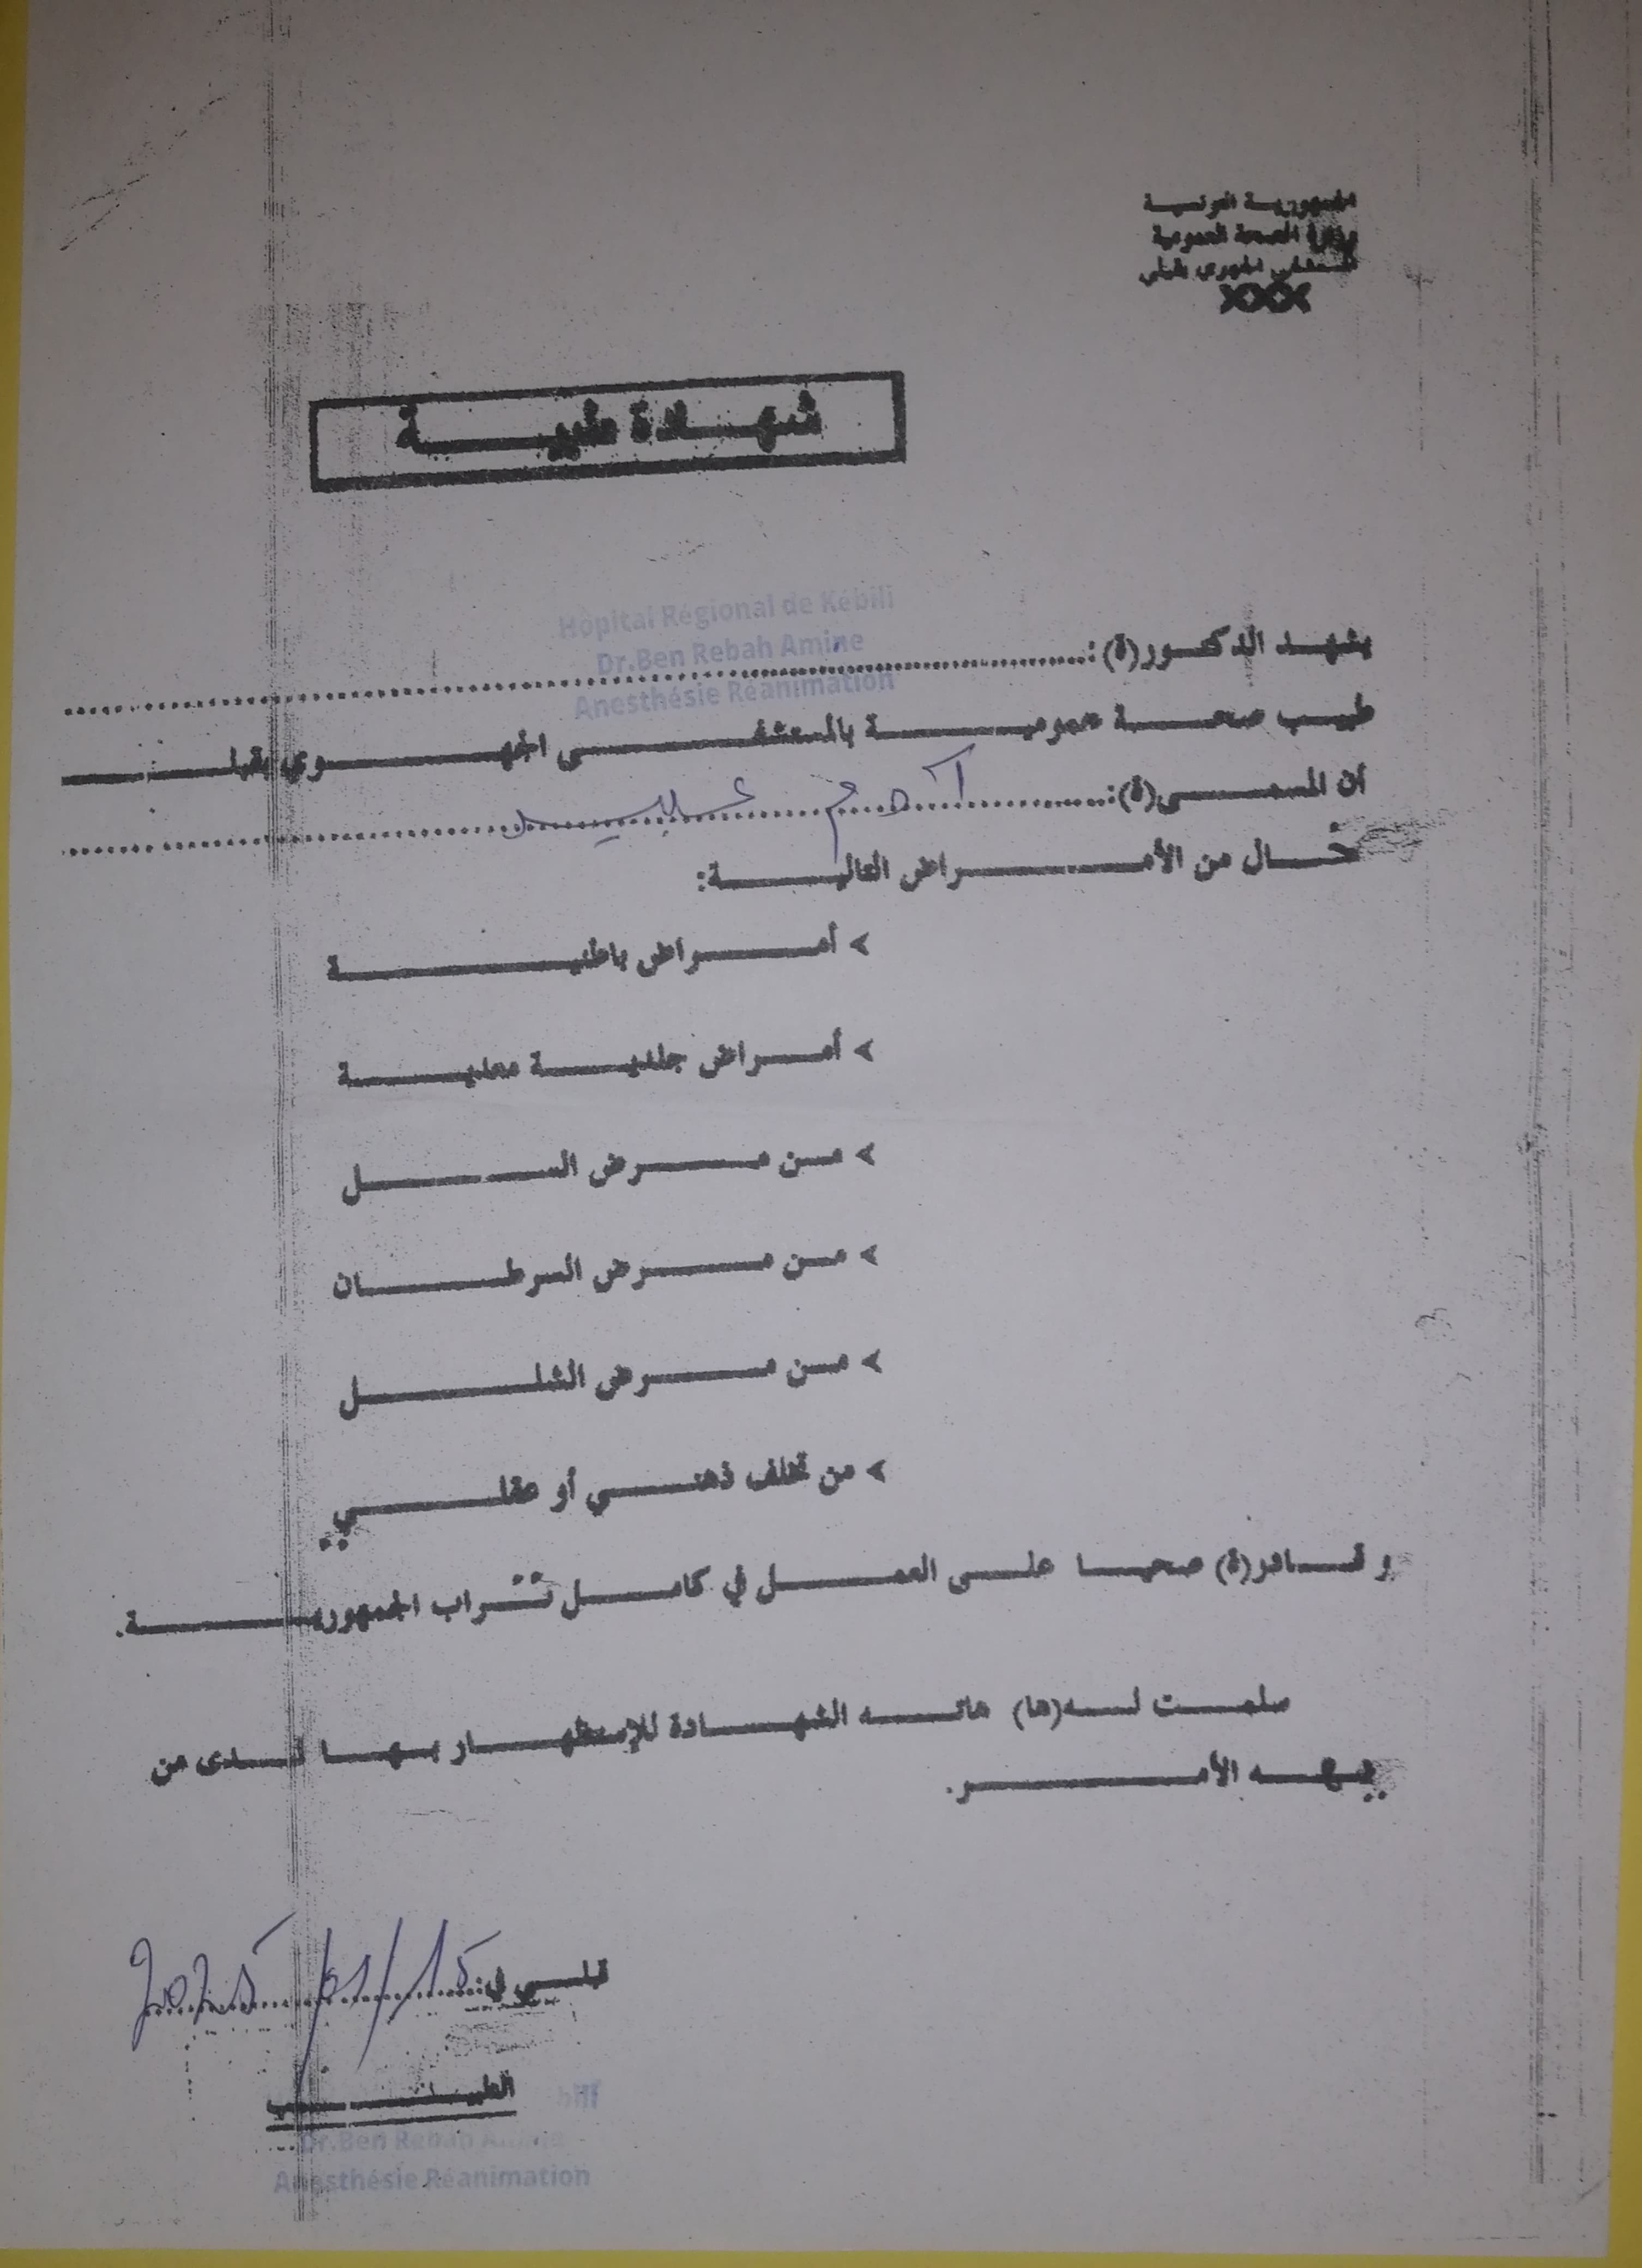 الجمهورية التونسية
وزارة الصحة العمومية
المستشفى الجهوي بقبلي
شهادة طبية
Hôpital Régional de Kébili
Dr.Ben Rebah Amine
Anesthésie Réanimation
يشهد الدكتور(ة):
طبيب صحة عمومية بالمستشفى الجهوي بقبلـ
أن المسمى(ة):
خال من الأمراض التالية:
> أمراض باطنية
> أمراض جلدية معدية
> من مرض السل
> من مرض السرطان
> من مرض الشلل
> من تخلف ذهني أو عقلي
و قادر(ة) صحيا على العمل في كامل تراب الجمهورية.
سلمت له(ها) هاته الشهادة للإستظهار بها لدى من
يهمه الأمر.
قبلي في: 15/01/2025
الطبيب
bili
Dr.Ben Rebah Amine
Anesthésie Réanimation